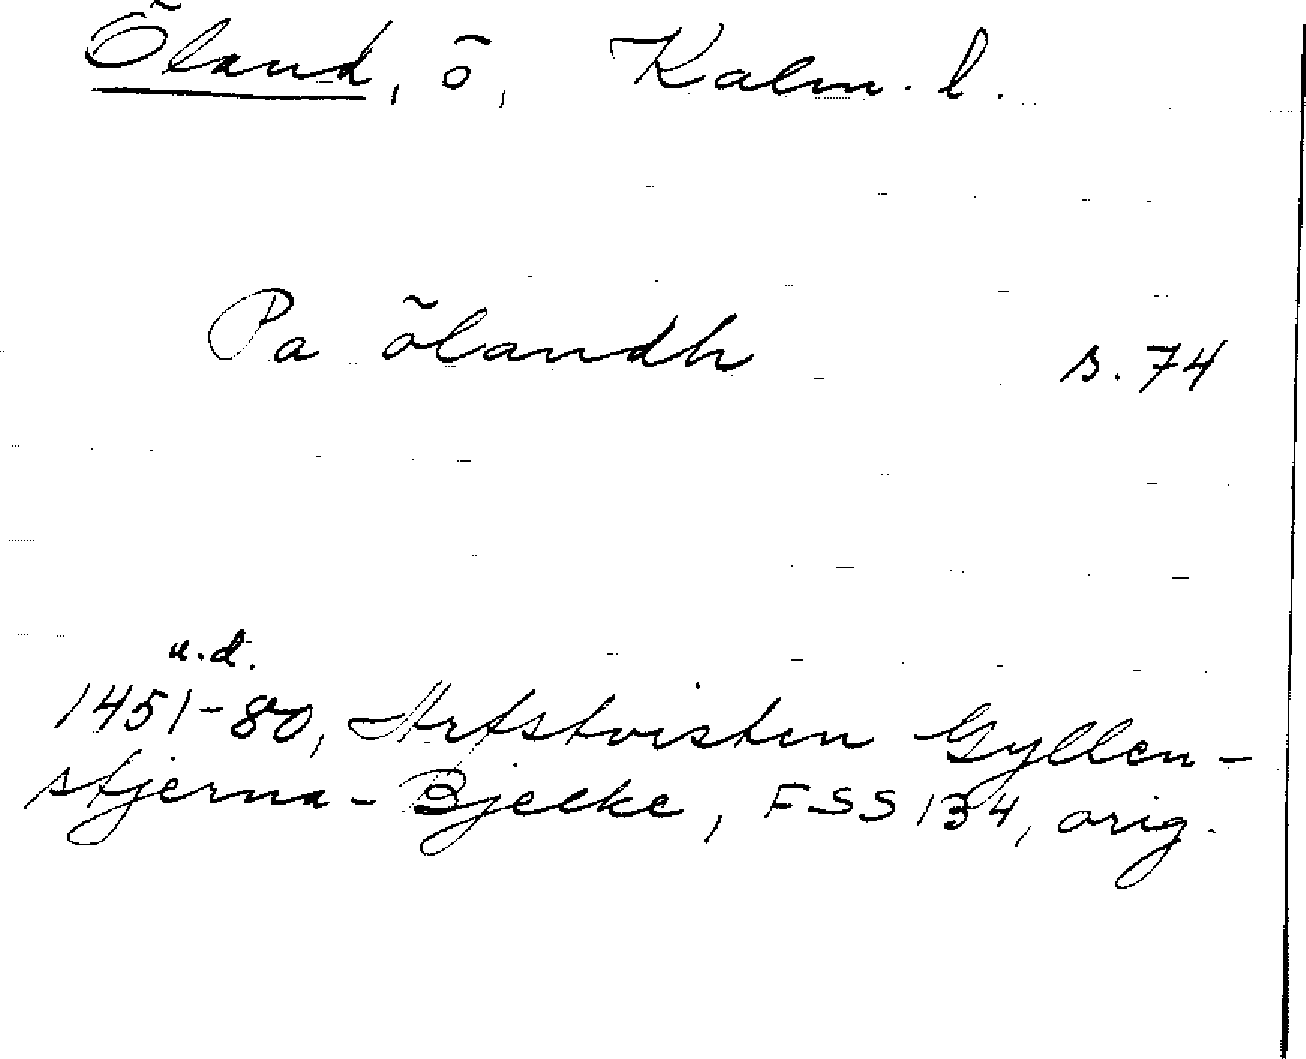 Öland, ö, Kalm. l.
Pa ölandh s. 74
u.d.
1451-80, Arfstvisten Gyllen-
stjerna - Bjelke, FSS 134, orig.